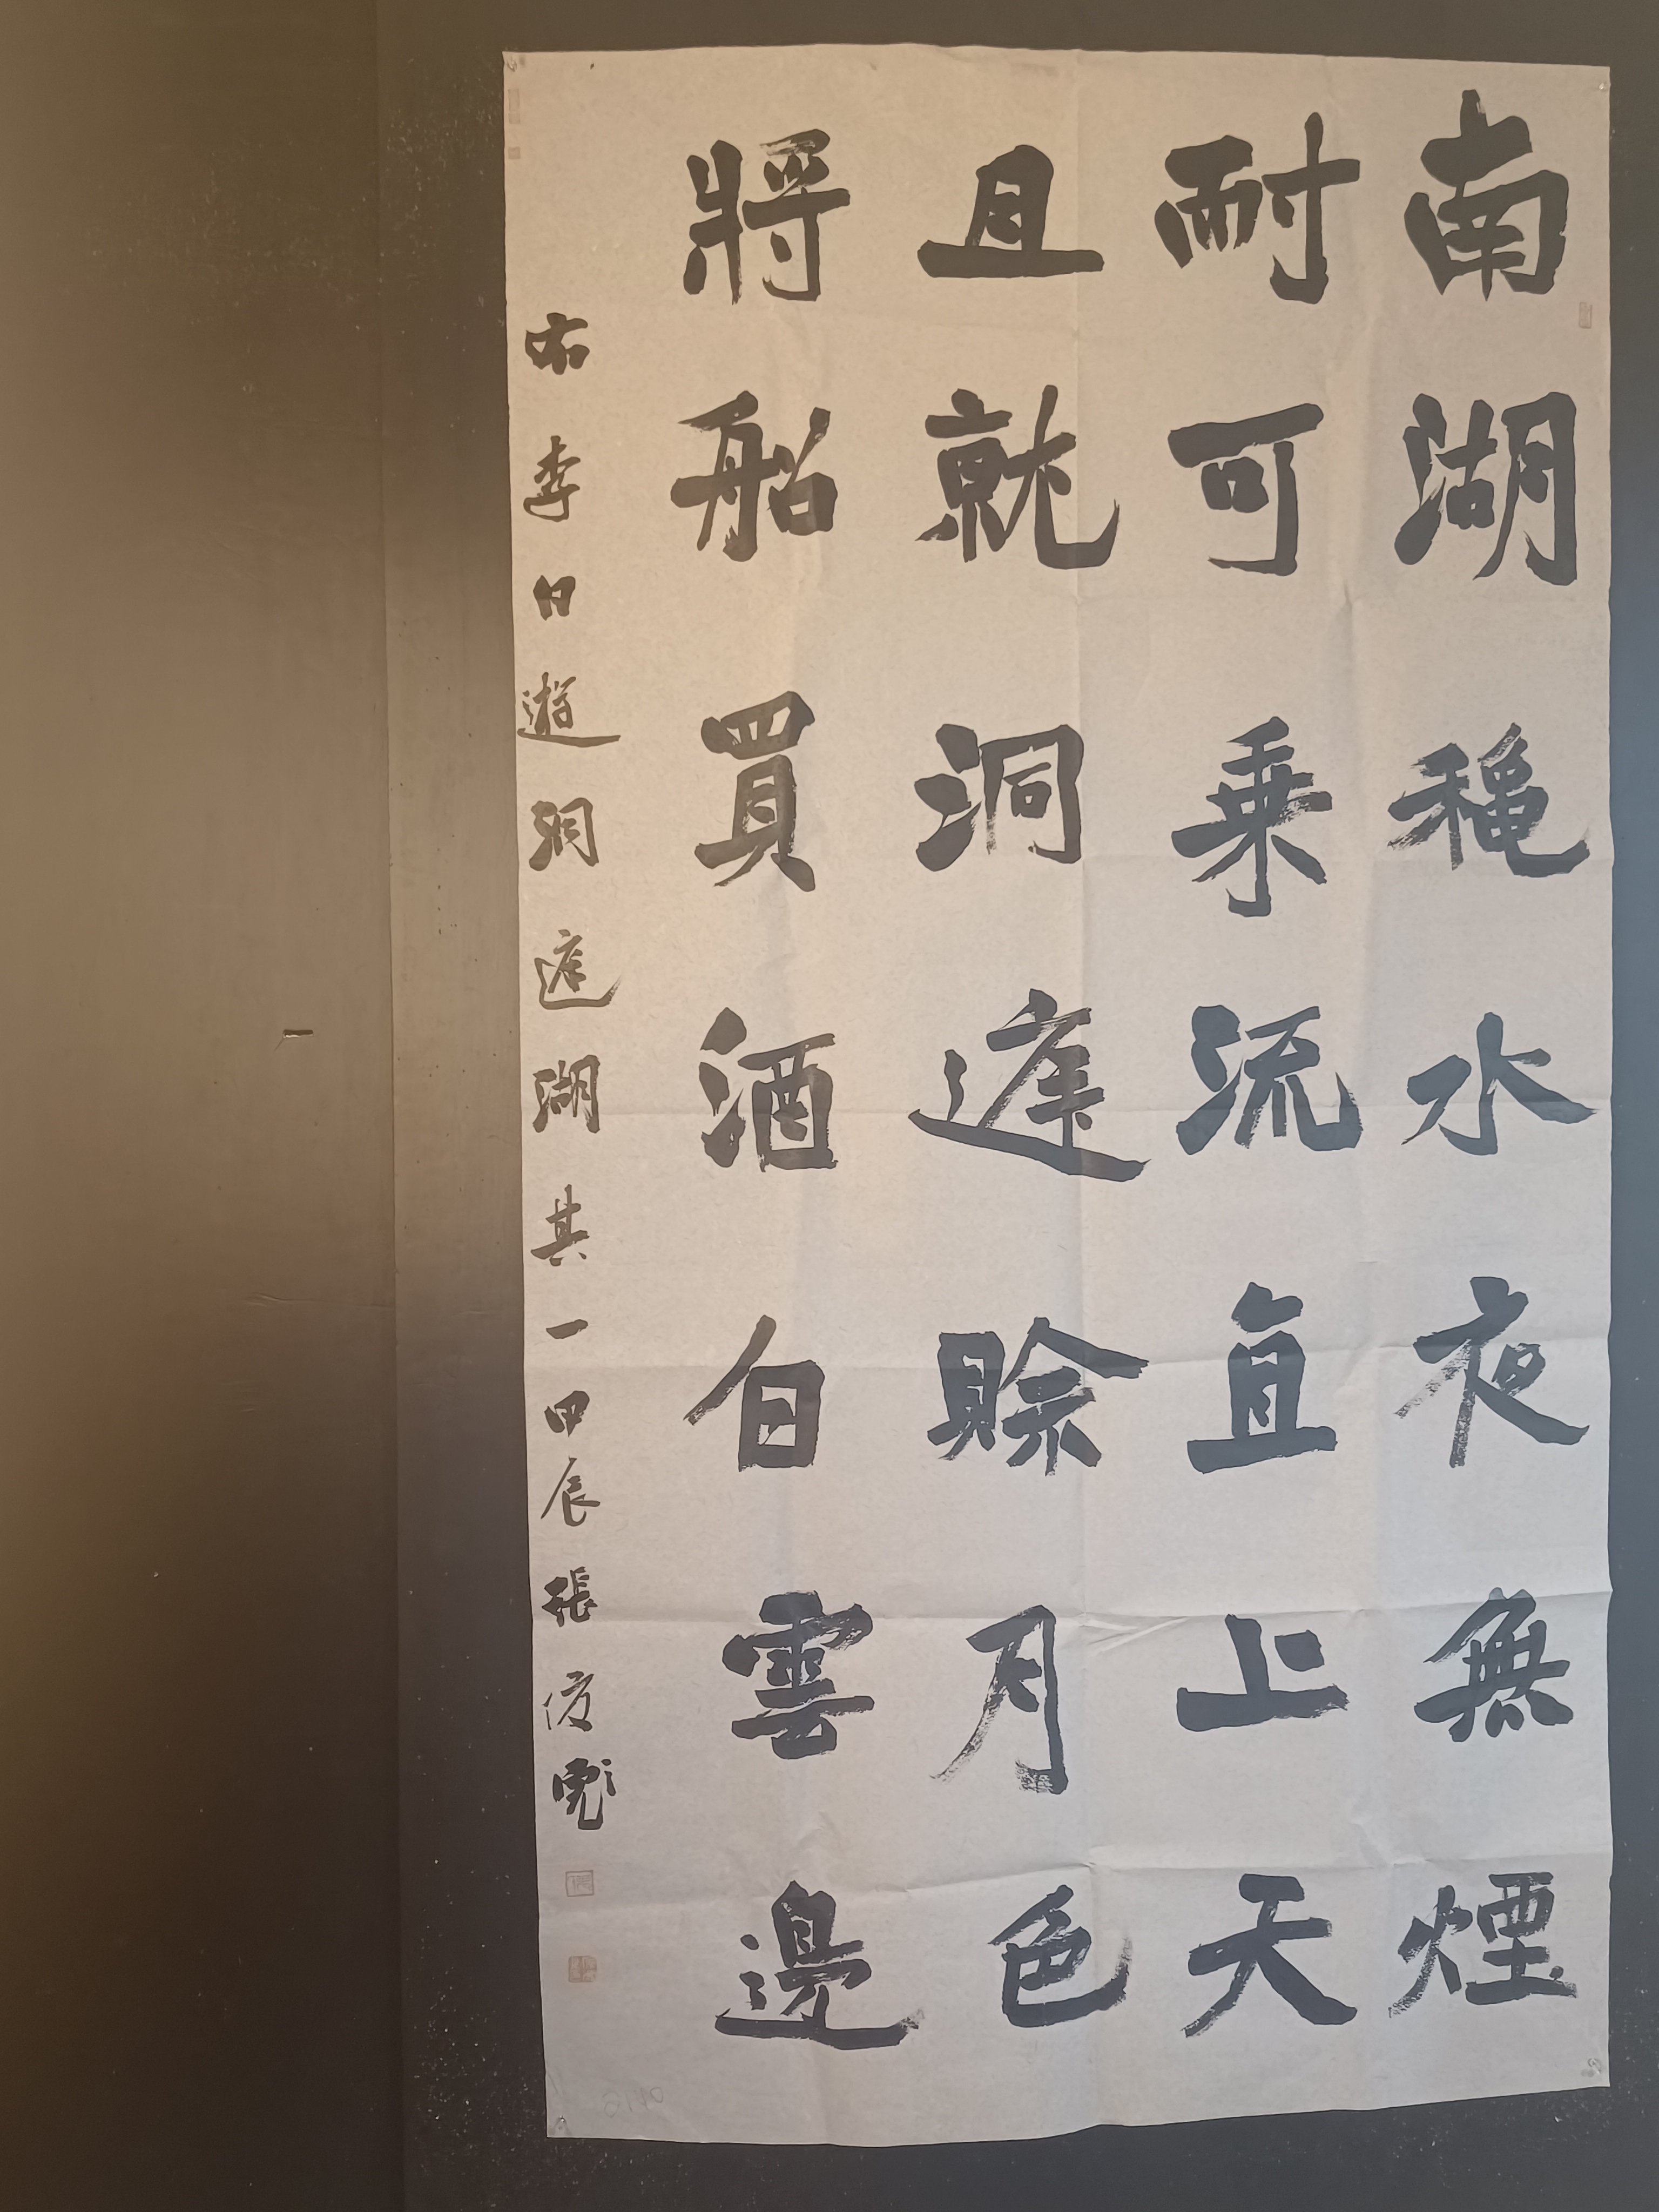 南湖穐水夜無煙
耐可乗流直上天
且就洞庭賒月色
將船買酒白雲邊
右李白遊洞庭湖其一甲辰張俊彪